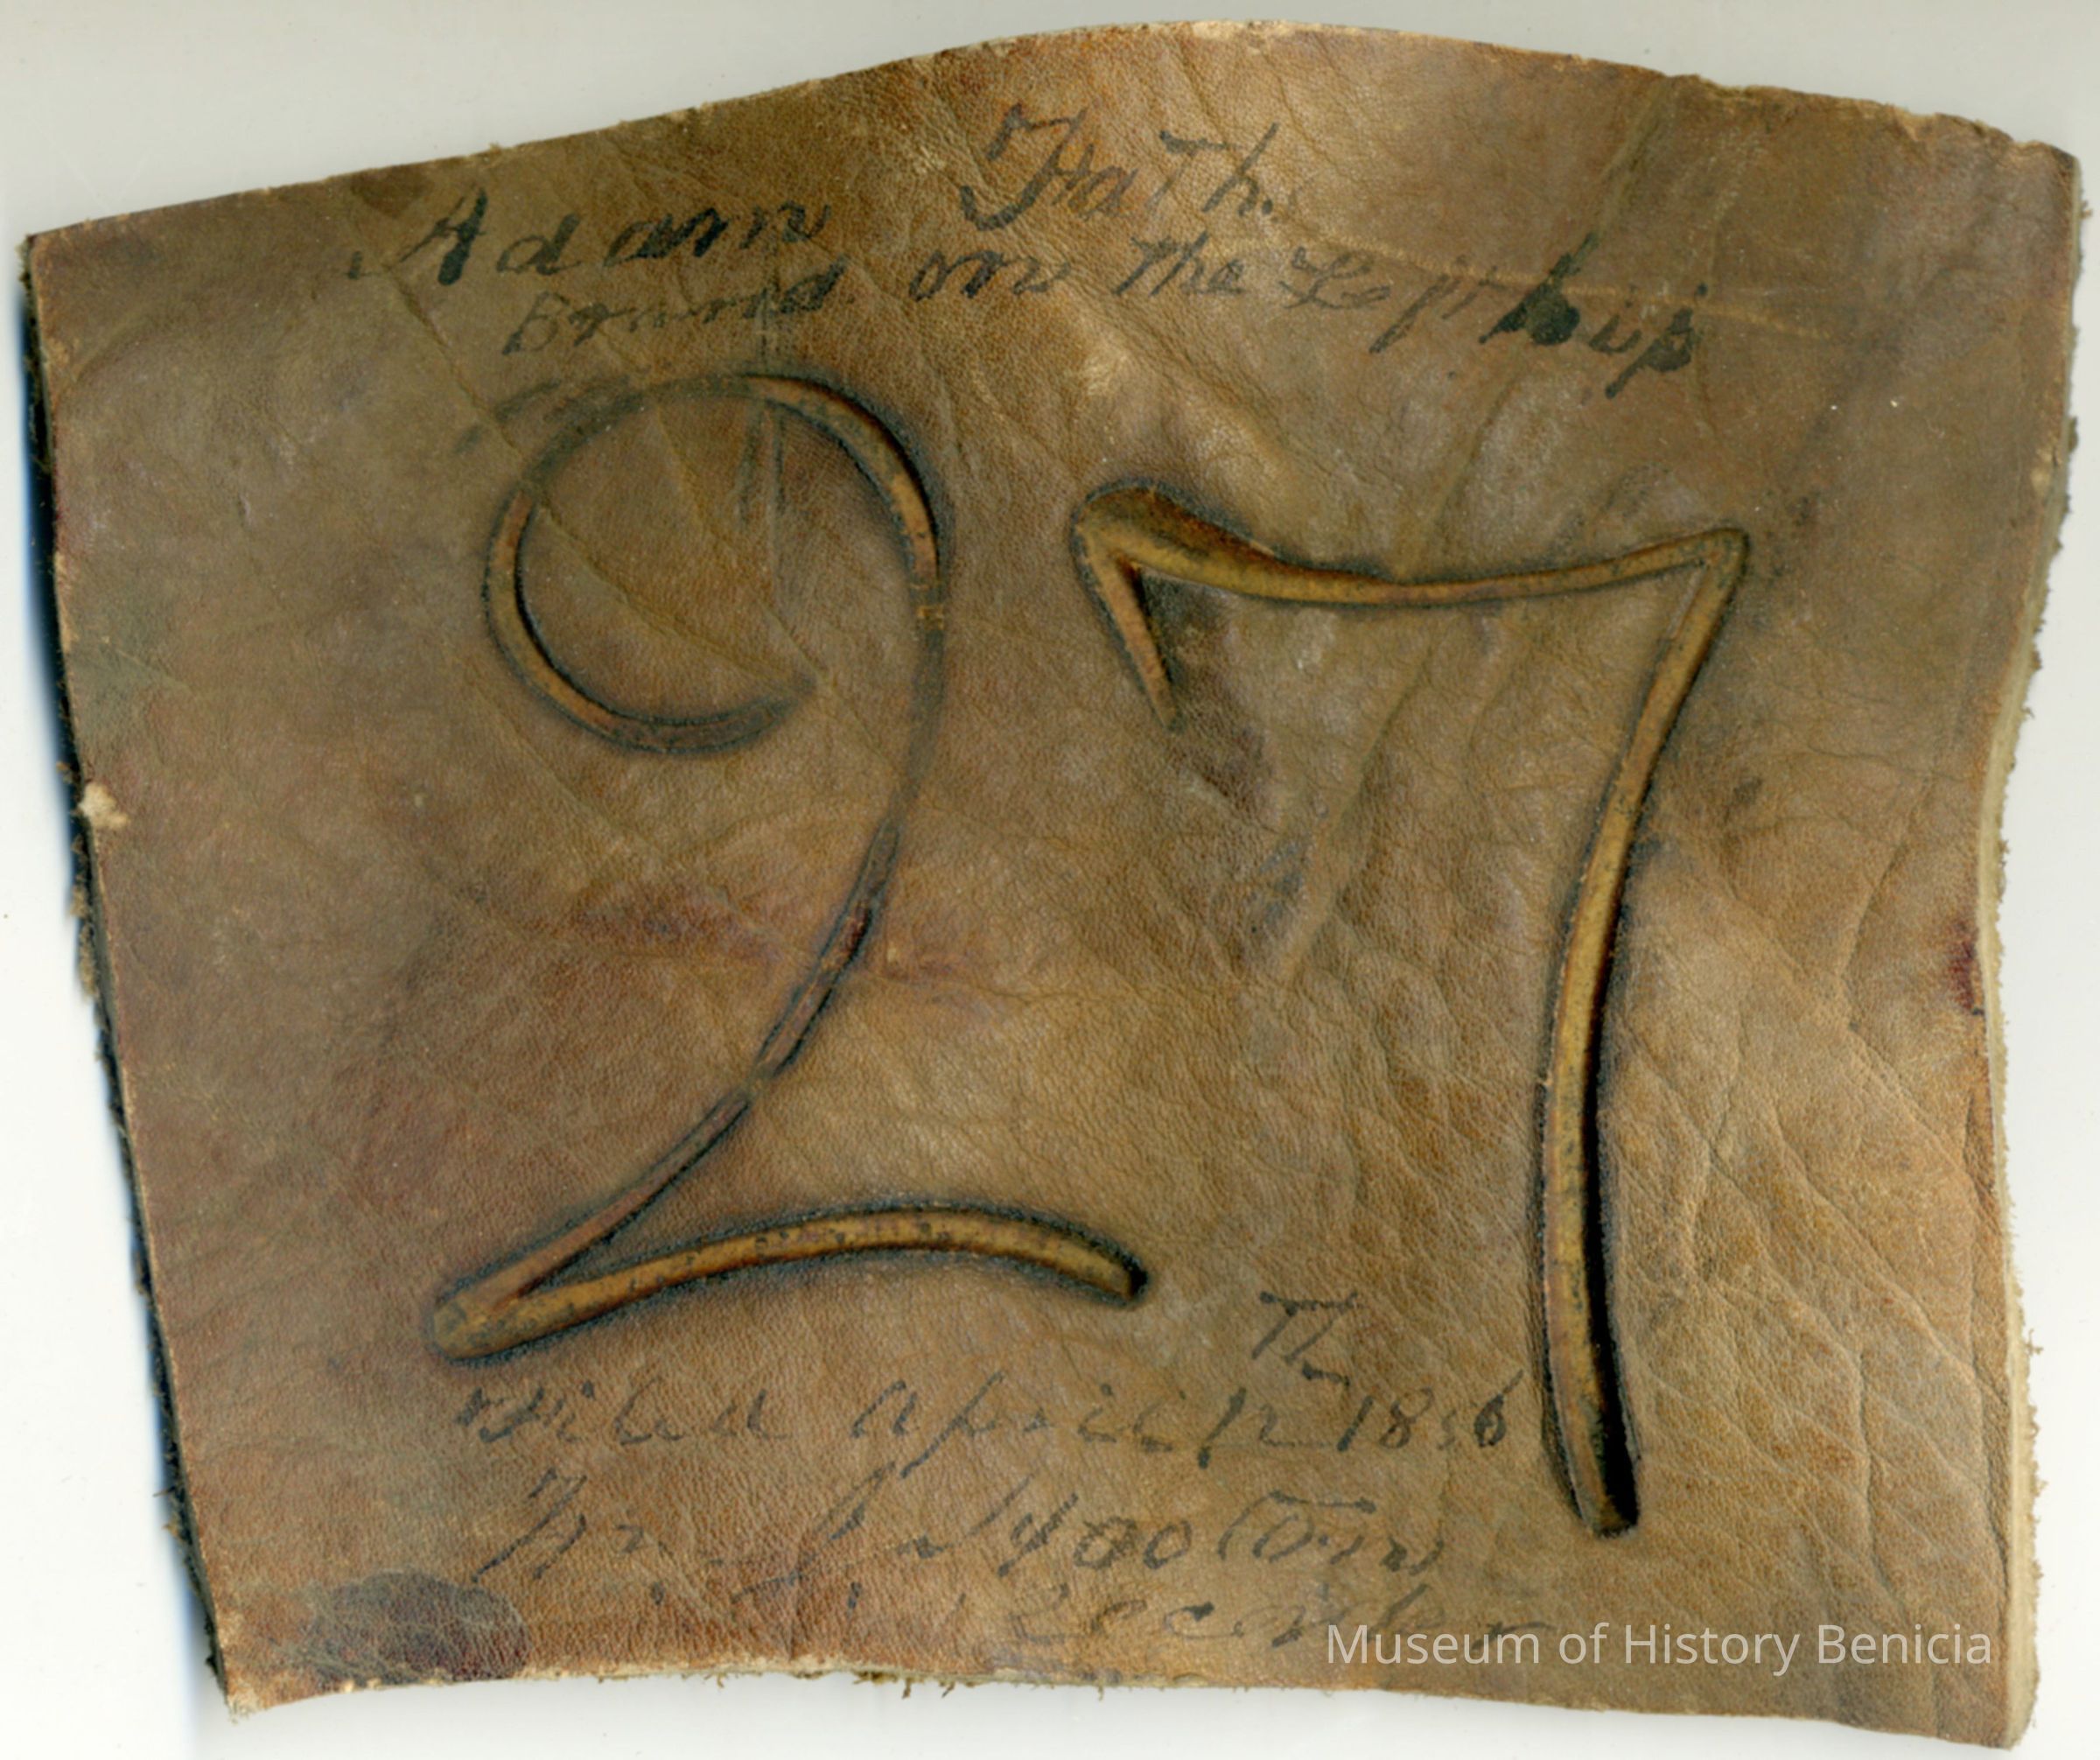 Adam Fath.
Brand on the Left hip
27
Filed April 12th 1856
Recorder
Museum of History Benicia